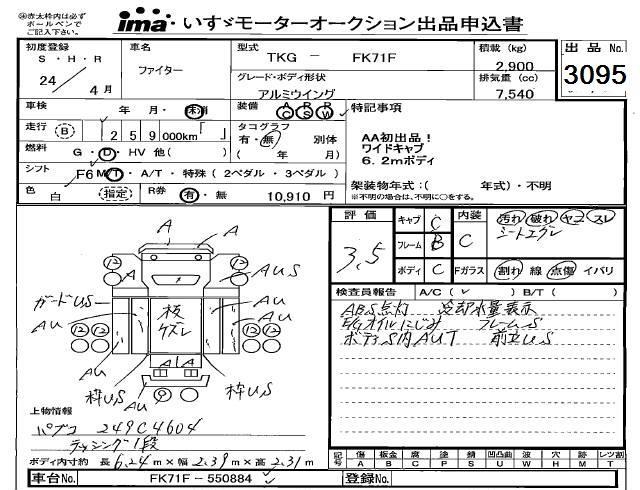 ㊟赤太枠内は必ず
ボールペンで
ご記入下さい。
ima いすゞモーターオークション出品申込書
初度登録
S・H・R
24 / 4月
車名
ファイター
型式
TKG － FK71F
グレード・ボディ形状
アルミウイング
積載 (kg)
2,900
排気量 (cc)
7,540
出品 No.
3095
車検 年 月・抹消
装備 A R R
C S W
特記事項
走行 (B) 259 000km「 」
タコグラフ
有・無 別体
( 年 月)
AA初出品！
ワイドキャブ
6.2mボディ
燃料 G・D・HV 他( )
シフト F6 M/T・A/T・特殊 (2ペダル・3ペダル)
色 白 (指定) R券 有・無 10,910 円
架装物年式：( 年式)・不明
※不明の場合は、不明に○をする。
評価
3.5
キャブ C
フレーム B
ボディ C
内装 C
汚れ 破れ ヤニ スレ
シートエグレ
Fガラス 割れ 線 点傷 イバリ
検査員報告 A/C (✓) B/T ( )
ABS点灯 冷却水量表示
E/Gオイルにじみ フレームS
ボデーS内AUT 前立US
A
A
12
12
12
12
A
AUS
ガードUS
AU
AU
板
ケズレ
AU
AU
12
12
A A
枠US
枠US
AU
上物情報
パブコ 249C4604
ラッシング1段
ボディ内寸約 長 6.24m×幅 2.39m×高 2.31m
記号 傷 板金 腐 塗 錆 凹凸曲 波 穴 跡 レンズ割
A B C P S U W H M T
車台No. FK71F－550884
登録No.